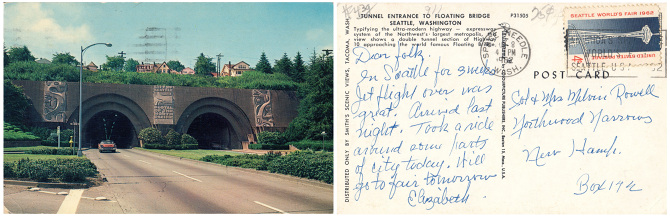 TUNNEL ENTRANCE TO FLOATING BRIDGE
SEATTLE, WASHINGTON
P31505
Typifying the ultra-modern highway - expressway
system of the Northwest's largest metropolis,
view shows a double tunnel section of Highway
10 approaching the world famous Floating
Dear folks,
In Seattle for
Jet flight over was
great. Arrived last
night. Took a ride
around some parts
of city today. Will
go to fair tomorrow
Elizabeth
DISTRIBUTED ONLY BY SMITH'S SCENIC VIEWS, TACOMA, WASH.
SPACE NEEDLE
4 PM
1962
WASH.
SEATTLE WORLD'S FAIR 1962
4¢
SEATTLE
POST CARD
Col & Mrs Melvin Rowell
Northwood Narrows
New Hamp.
Box 172